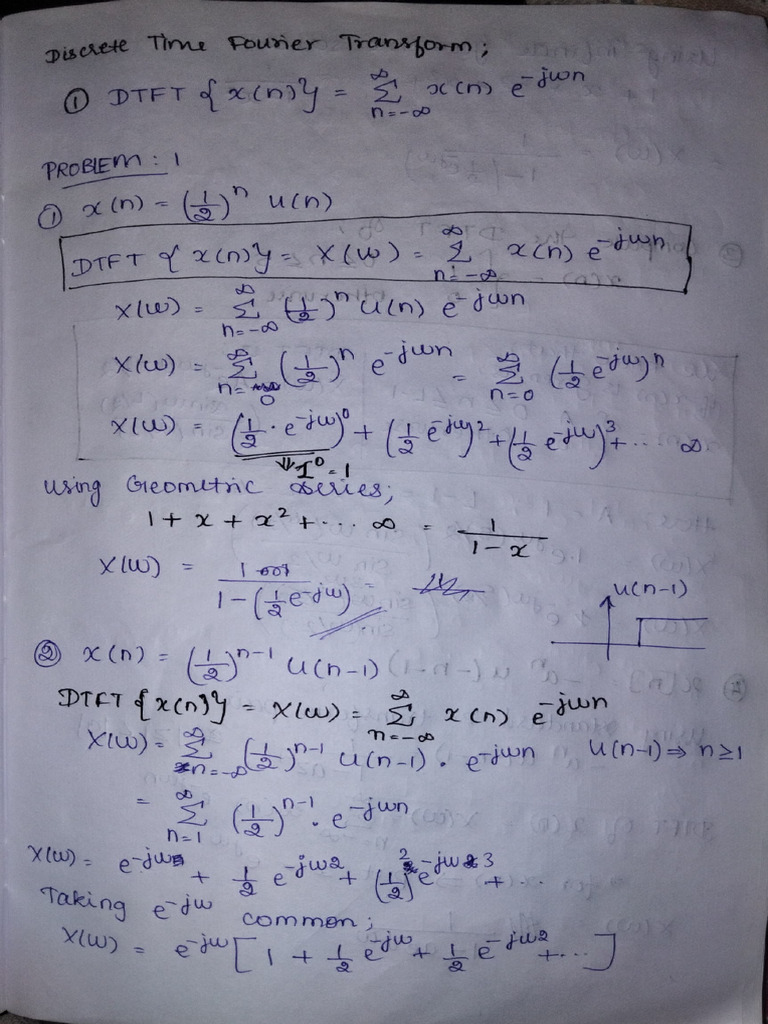 Discrete Time Fourier Transform;
① DTFT {x(n)} = ∞Σn=-∞ x(n) e^-jωn
PROBLEM: 1
① x(n) = (1/2)^n u(n)
DTFT {x(n)} = X(ω) = ∞Σn=-∞ x(n) e^-jωn
X(ω) = ∞Σn=-∞ (1/2)^n u(n) e^-jωn
X(ω) = ∞Σn=0 (1/2)^n e^-jωn = ∞Σn=0 (1/2 e^-jω)^n
X(ω) = (1/2 · e^-jω)^0 + (1/2 e^-jω)^2 + (1/2 e^-jω)^3 + ... ∞
⇓ I^0 = 1
using Geometric series;
1 + x + x^2 + ... ∞ = 1/(1-x)
X(ω) = 1/(1-(1/2 e^-jω)) =
u(n-1)
② x(n) = (1/2)^n-1 u(n-1)
DTFT {x(n)} = X(ω) = ∞Σn=-∞ x(n) e^-jωn
X(ω) = ∞Σn=-∞ (1/2)^n-1 u(n-1) · e^-jωn u(n-1) ⇒ n≥1
= ∞Σn=1 (1/2)^n-1 · e^-jωn
X(ω) = e^-jω + 1/2 e^-jω2 + (1/2)^2 e^-jω3 + ...
Taking e^-jω common;
X(ω) = e^-jω [1 + 1/2 e^-jω + 1/2 e^-jω2 + ...]